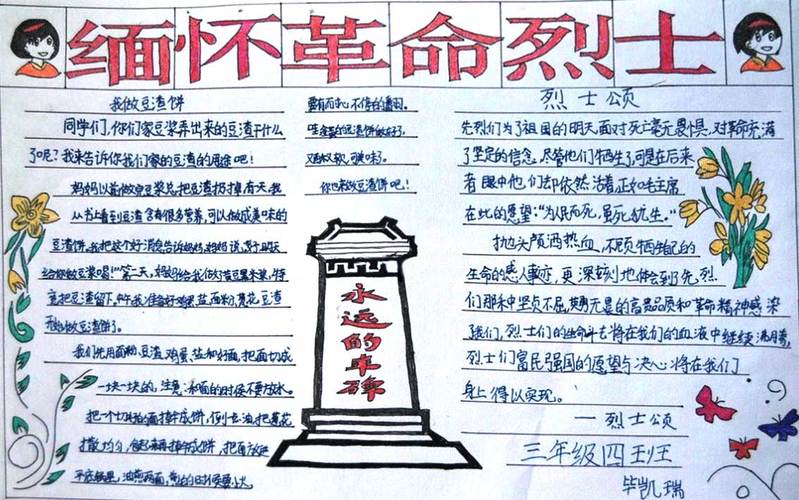 缅怀革命烈士
我做豆渣饼
同学们，你们家豆浆弄出来的豆渣干什么
了呢？我来告诉你我们家的豆渣的用途吧！
妈妈以前做豆浆总把豆渣扔掉有天我
从书上看到豆渣含有很多营养，可以做成美味的
豆渣饼。我把这个好消息告诉妈妈，妈妈说，
给你做豆浆喝！”第二天，妈妈给我
把豆渣留下，准备好鸡蛋，盐，面粉，葱花，豆渣
开始做豆渣饼了。
我们先用面粉，豆渣，鸡蛋，盐和好面，把面切成
一块一块的，注意：和面的时候不要放水。
把一个切好的面擀成饼，倒上油，把葱花
撒均匀，擀成饼，把
平底锅里，油煎两面，
要有耐心，不停的翻。
哇，豆渣饼做好了，
又软，可美味了。
你也来做豆渣饼吧！
永远的丰碑
烈士颂
先烈们为了祖国的明天，面对死亡毫无畏惧，对革命充满
了坚定的信念，尽管他们牺牲了，可是在后来
者眼中他们却依然活着，正如毛主席
在此的愿望：“为人民而死，虽死犹生。”
抛头颅洒热血，不顾牺牲自己的
生命的感人事迹，更深刻地体会到了先烈
们那种坚贞不屈，英勇无畏的高贵品质和革命精神感染
我们，烈士们的生命将在我们的血液中继续流淌着，
烈士们富民强国的愿望与决心将在我们
身上得以实现。
—烈士颂
三年级四班
毕凯瑞